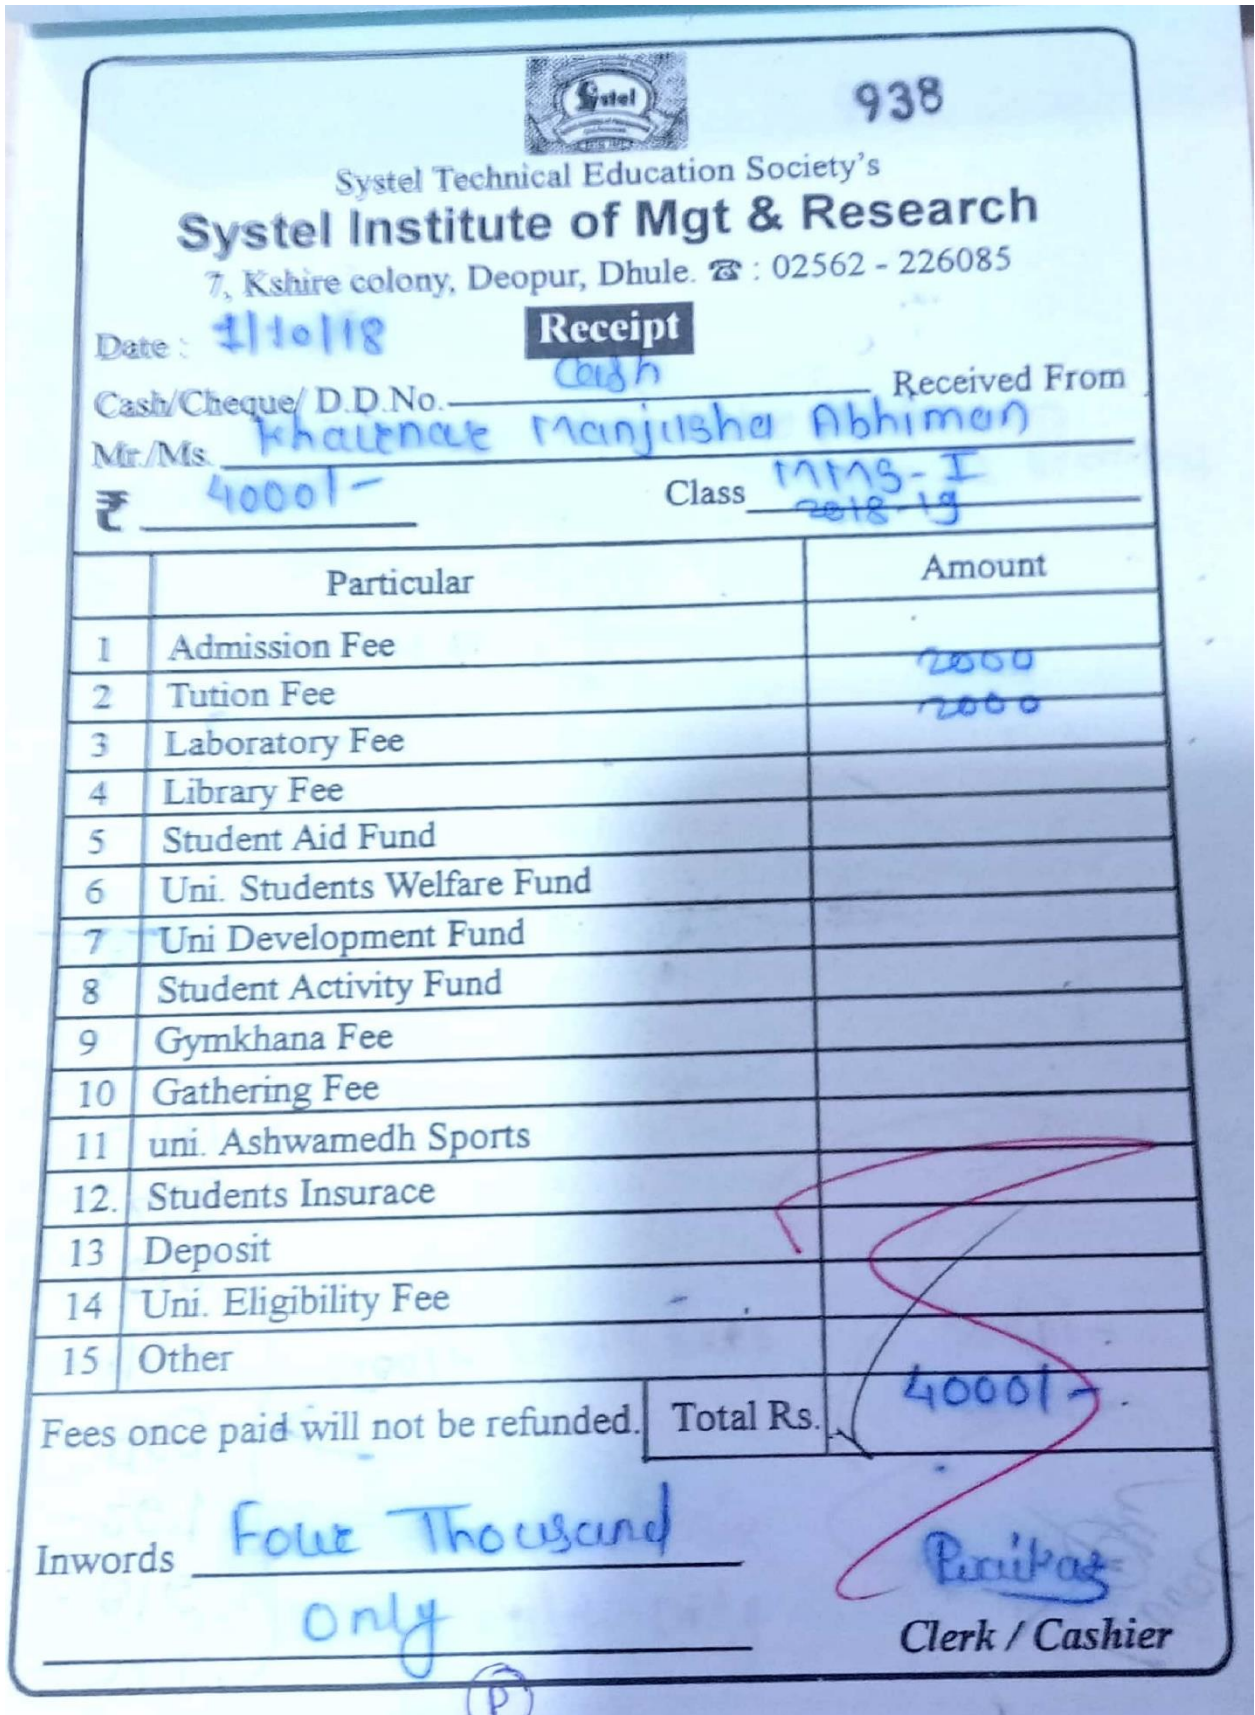 Systel
938
Systel Technical Education Society's
Systel Institute of Mgt & Research
7, Kshire colony, Deopur, Dhule. ☎ : 02562 - 226085
Date : 1/10/18 Receipt
Cash/Cheque/ D.D.No. Cash Received From
Mr./Ms. Khairnar Manjusha Abhiman
₹ 4000/- Class MMS-I
2018-19
Particular Amount
1 Admission Fee
2 Tution Fee 2000
3 Laboratory Fee 2000
4 Library Fee
5 Student Aid Fund
6 Uni. Students Welfare Fund
7 Uni Development Fund
8 Student Activity Fund
9 Gymkhana Fee
10 Gathering Fee
11 uni. Ashwamedh Sports
12. Students Insurace
13 Deposit
14 Uni. Eligibility Fee
15 Other
Fees once paid will not be refunded. Total Rs. 4000/-
Inwords Four Thousand
only
Clerk / Cashier
P